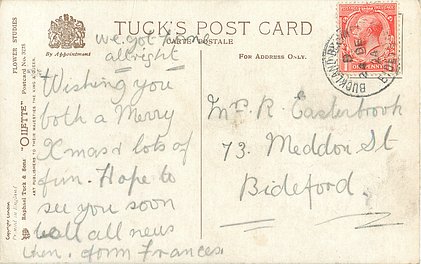 TUCK'S POST CARD
CARTE POSTALE
By Appointment
FOR ADDRESS ONLY.
FLOWER STUDIES
"OILETTE" Postcard No.
Raphael Tuck & Sons
ART PUBLISHERS TO THEIR MAJESTIES THE KING & QUEEN.
Copyright
we got home
allright
Wishing you
both a Merry
Xmas & lots of
fun. Hope to
see you soon
all news
then. from Frances.
Mr R. Easterbrook
73. Meddon St
Bideford.
BUCKLAND
DE
ONE PENNY